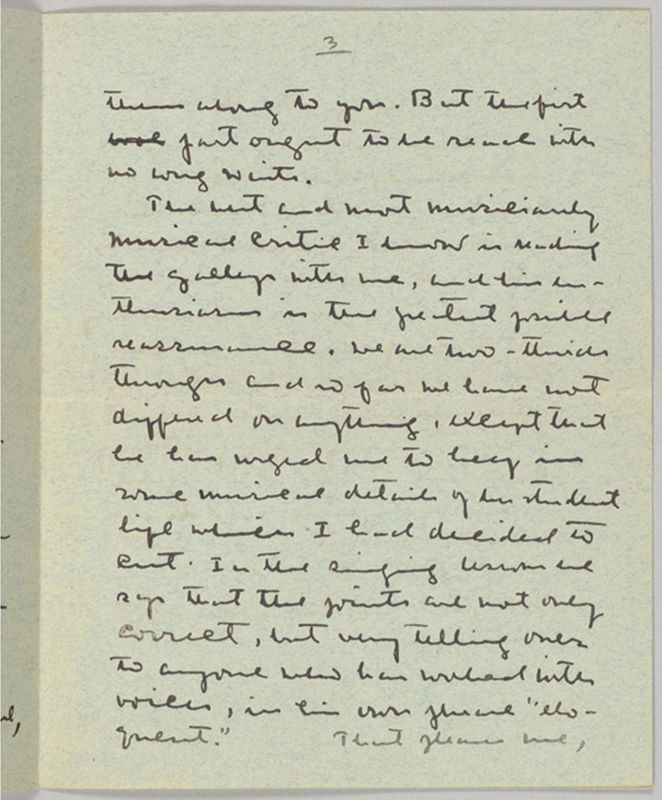 3
them along to you. But the first
part ought to be read with
no long waits.
The best and most musicianly
musical critic I know is reading
the galleys with me, and his en-
thusiasm is the greatest possible
reassurance. We are two-thirds
through and so far we have not
differed on anything, except that
he has urged me to keep in
some musical details of her student
life which I had decided to
cut. In the singing lessons he
says that the points are not only
correct, but very telling ones
to anyone who has worked with
voices, in his own phrase "elo-
quent." That pleases me,